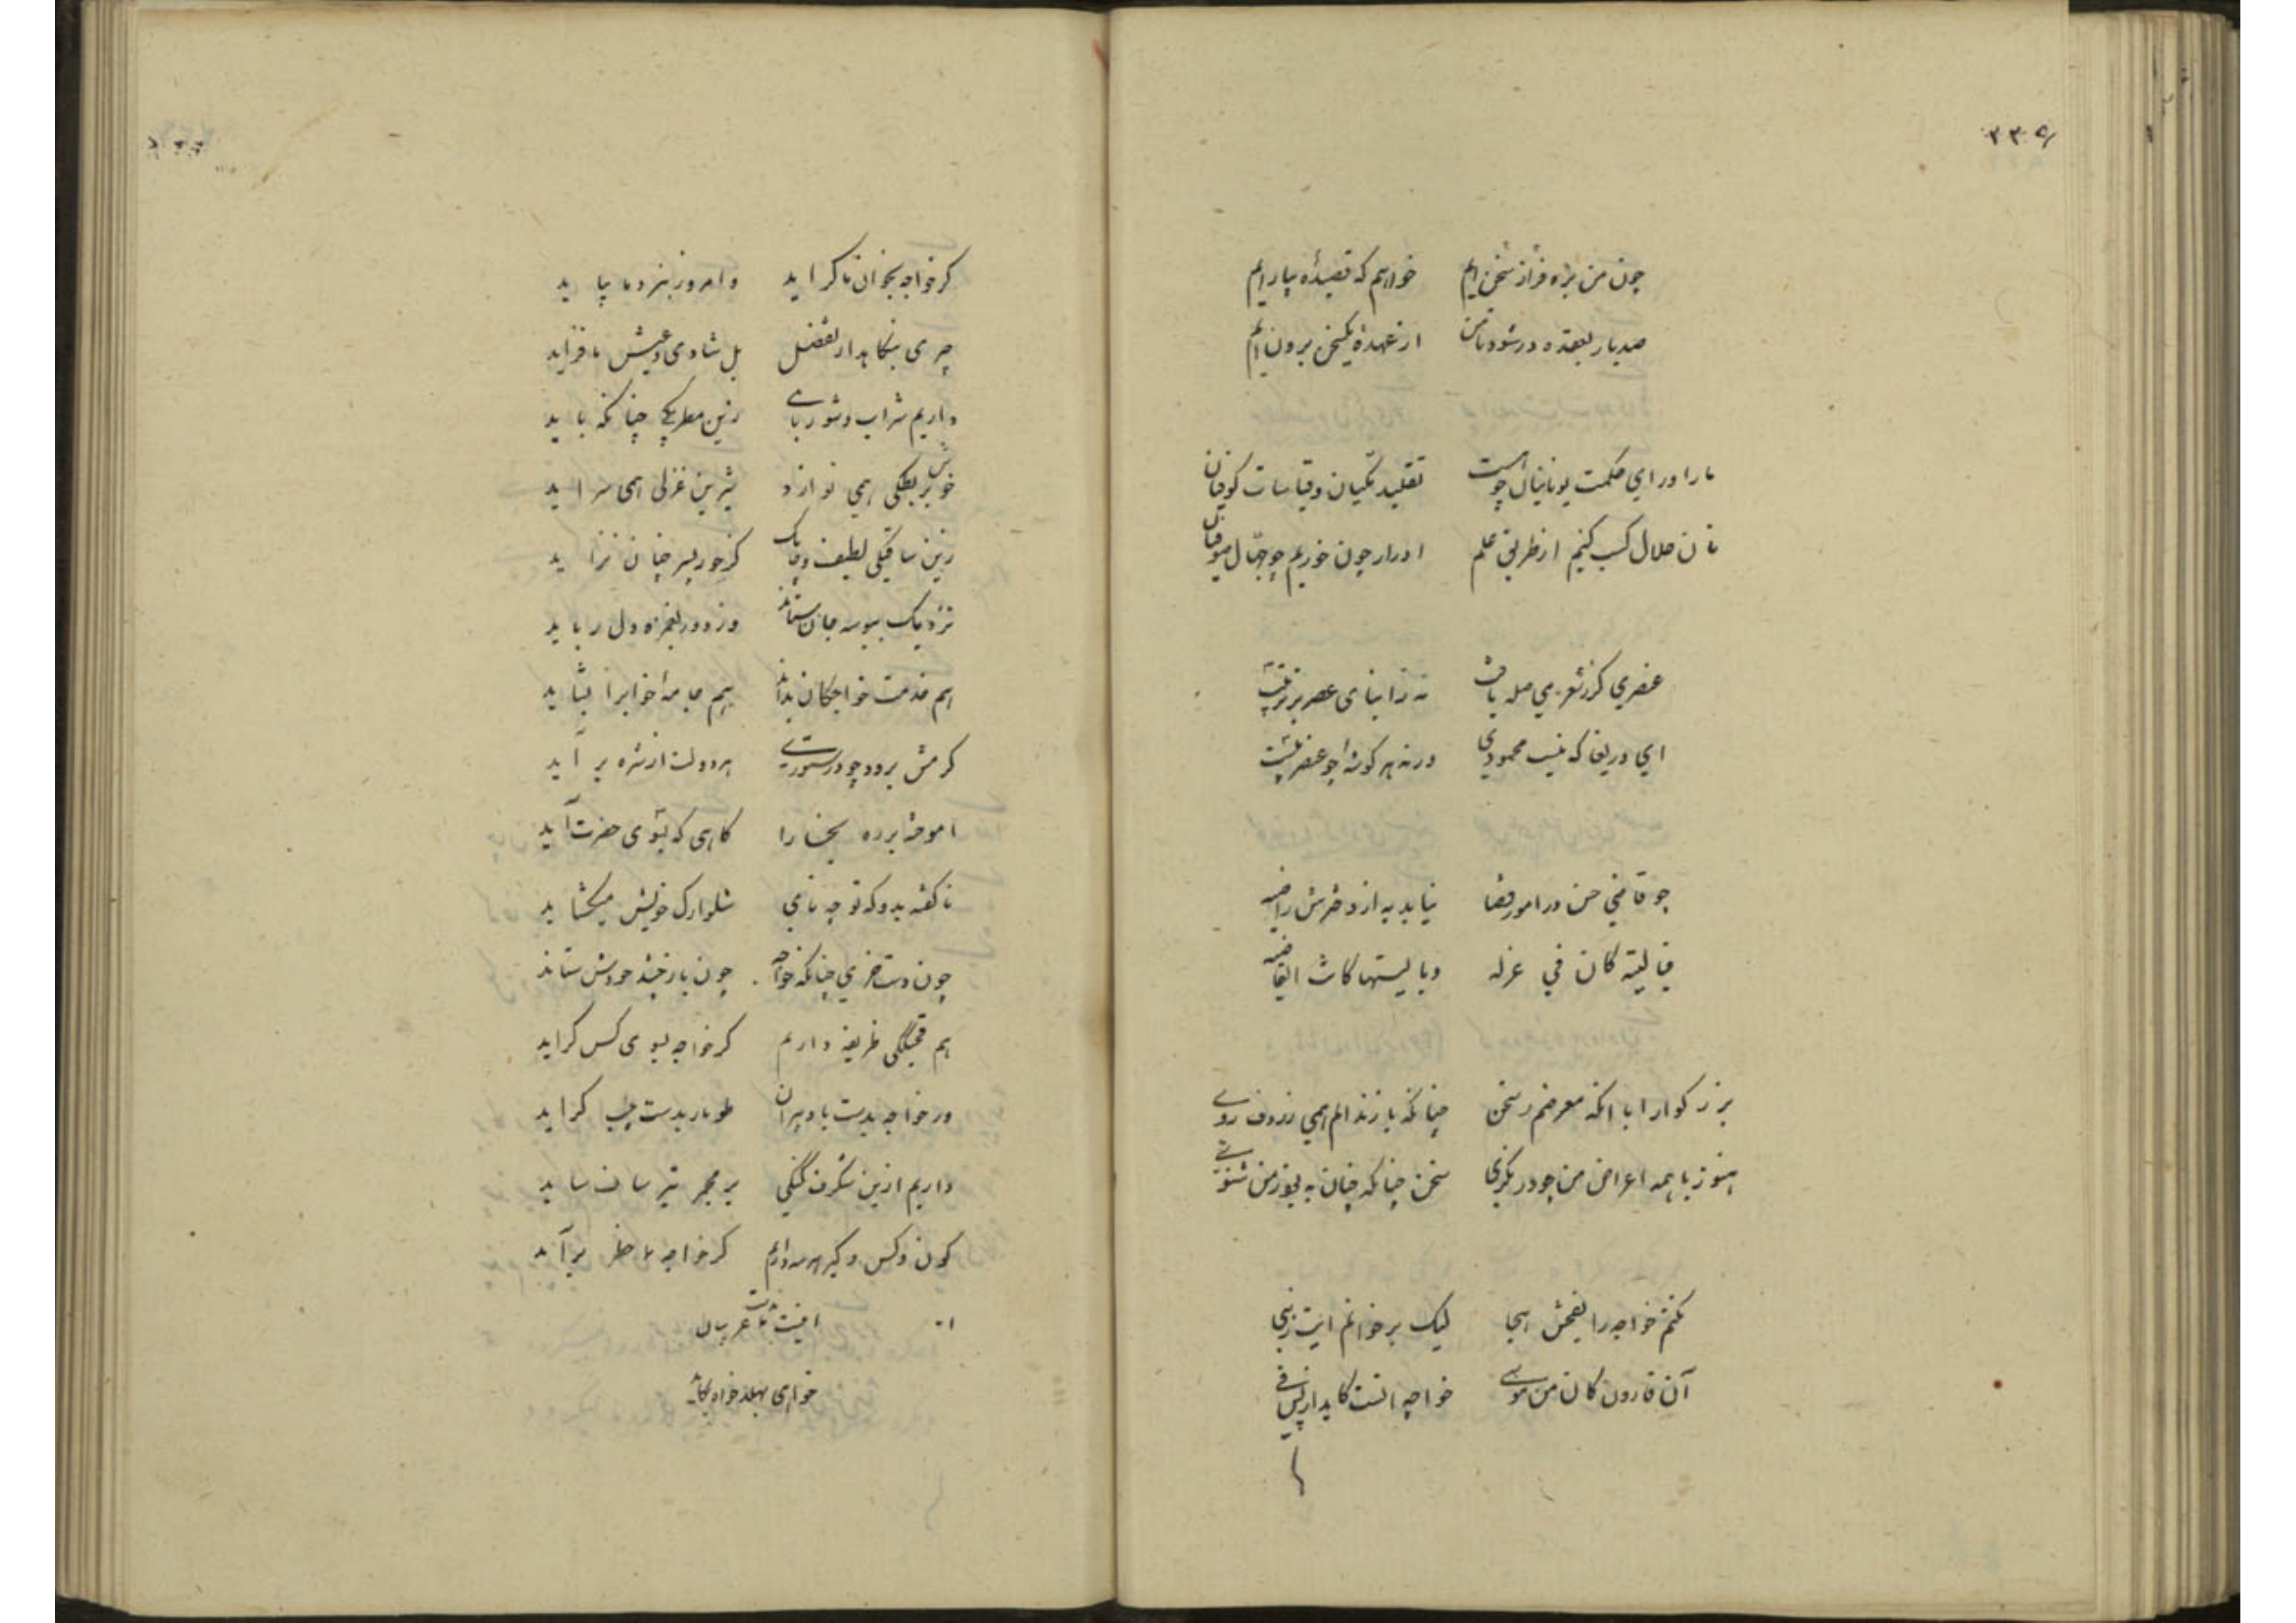 ۲۳۵
چون من بره فراز سخن ایم خواهم که قصیدهٔ بیارایم
صد بار بعقده در شود تا من از عهدهٔ یک سخن برون ایم
ما را ورای حکمت یونانیان چو هست تقلید مکیان و قیاسات کوفیان
نان حلال کسب کنیم از طریق علم ادرار چون خوریم چو جهال صوفیان
عنصری کر ز شعر می صله یافت نه ز ابنای عصر برتریست
ای دریغا که نیست محمودی ورنه هر کوشه چو عنصریست
چو قاضی حسن در امور قضا نیاید به از دخترش راضیه
فیا لیته کان فی عزله ویا لیتها کانت القاضیه
بزرکوارا با انکه معرضم ز سخن چنانکه باز ندانم همی ردیف روی
هنوز با همه اعراض من چو در نکری سخن چنانکه چنان به بود ز من شنوی
نکنم خواجه را بفحش هجا لیک برخوانم این
آن قارون کان من موسی خواجه انست کاید از پس فی
کر خواجه بخوان ما کراید وامروز بنزد ما بپاید
چیزی بنکاهد از تفضل بل شادی و عیش ما فزاید
داریم شراب و شوربای زین مطربکی چنانکه باید
خوش بربطکی همی نوازد شیرین غزلی همی سراید
زین ساقیکی لطیف و چابک کز حور پسر چنان نزاید
نزدیک ببوسه جان ستاند وز دور بغمزه دل رباید
هم خدمت خواجکان بداند هم جامهٔ خواب را بشاید
کرمش برود چو در ستوری هر دولت از شره بر آید
اموخته برده بخشا را کاهی که بنوی حضرت آید
ناکفته بدو که تو چه نامی شلوارک خویش میکشاید
چون دست خری چنانکه خواجه چون باز خود خودش ستاند
هم قحبککی ظریفه داریم کر خواجه بسوی کس کراید
ور خواجه بدست با دبیران طومار بدست چپ کراید
داریم ازین شکرف کنکی بر مجمر تیز ساق ساید
کون و کس و کیر هر سه داریم کر خواجه بما ظفر بر آید
اینست
خواهی بهلد خواه بکاید